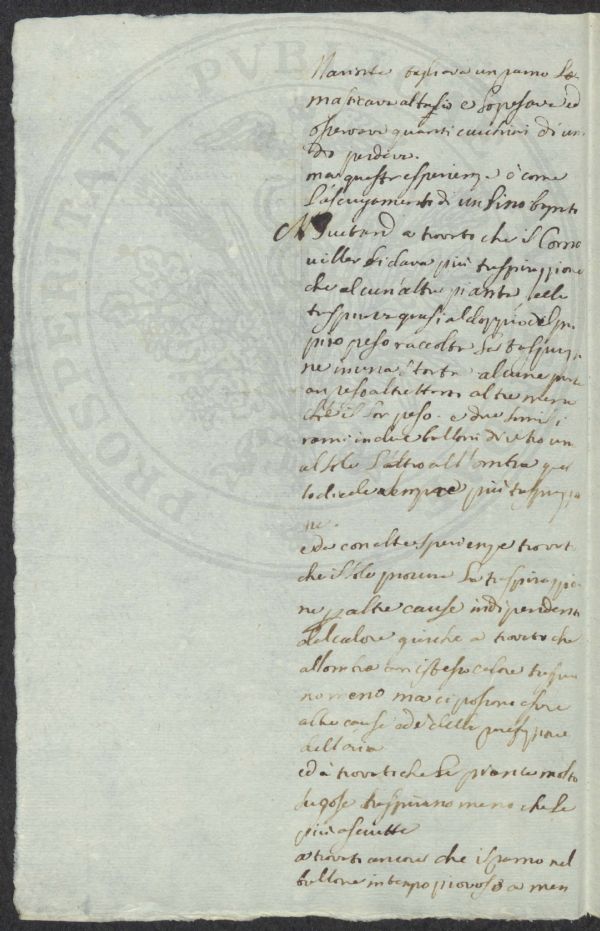 Mariotte tagliava un ramo La
masticava al taglio e Lo pesava ed
osservava quanti cucchiari di un
do perdeva.
ma queste esperienze è come
L'asciugamento di un Lino bagnato
Guetard a trovato che il Corno
viller Li dava più traspirazione
che alcun'altra pianta
traspirava quasi al doppio del pro
prio peso raccolta La traspirazio
ne in una storta alcune
an peso altrettanto altre meno
che il Lor peso. e due simili
rami in due balloni di vetro un
al sole L'altro all'ombra quel
lo di sole sempre più traspirazio
ne.
ed a con altre sperienze trovato
che il Sole procura La traspirazio
ne per altre cause indipendenti
dal calore poiche a trovato che
all'ombra con istesso calore traspira
no meno ma ci possono essere
altre cause della
dell'aria
ed à trovato che Le piante molto
sugose traspirano meno che Le
più asciutte
a trovato ancora che il ramo nel
ballone in tempo piovoso a men
PROLEGATI PVB